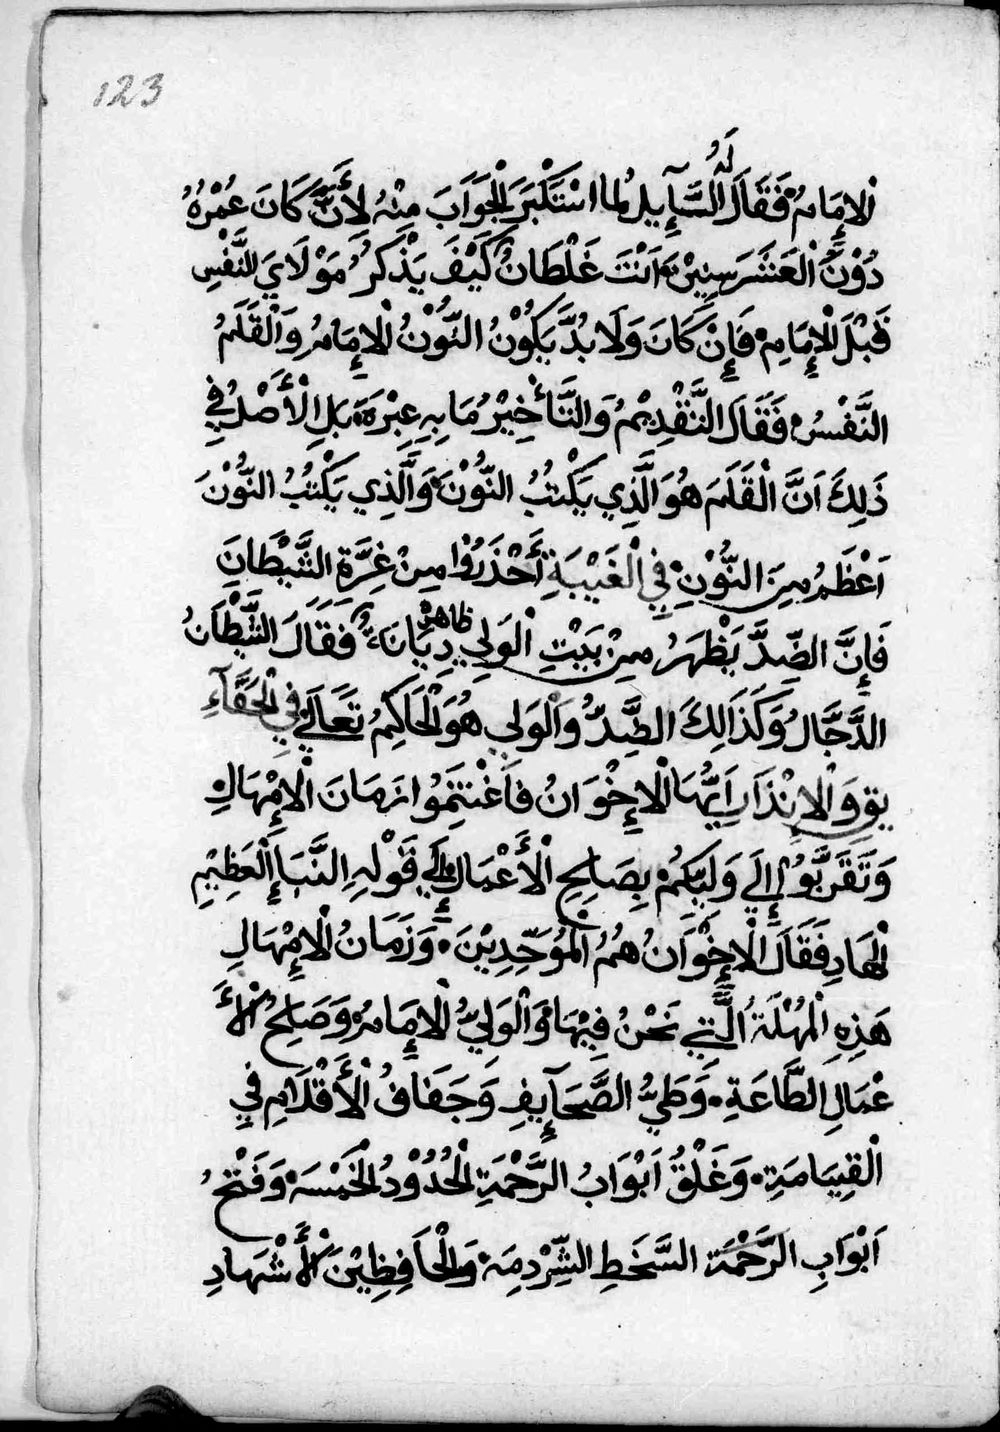 123
الإِمَامُ فَقَالَ لَهُ السَّآيِلُ لما اسْتَكْبَرَ الْجَوَابَ مِنْهُ لِأَنَّ كَانَ عُمْرُهُ
دُوْنَ الْعَشَرَ سِنِيْنَ اَنْتَ غَلْطَانٌ كَيْفَ يَذْكُرُ مَوْلَايَ للنَّفْسِ
قَبْلَ الْإِمَامِ فَإِنْ كَانَ وَلَا بُدَّ يَكُوْنُ النُّوْنُ الْإِمَامُ وَالْقَلَمُ
النَّفْسُ فَقَالَ التَّقْدِيْمُ وَالتَّأخِيْرُ مَا بِهِ عِبْرَةٌ بَلِ الْأَصْلُ فِي
ذَلِكَ اَنَّ الْقَلَمَ هُوَ الَّذِي يَكْتُبُ النُّوْنَ وَالَّذِي يَكْتُبُ النُّوْنَ
اَعْظَمُ مِنَ النُّوْنِ فِي الْغَيْبَةِ أَحْذَرُوْا مِنْ غِرَّةِ الشَّيْطَانِ
فَإِنَّ الضِّدَّ يَظْهَرُ مِنْ بَيْتِ الْوَلِي ظاهر دِيَانَةً فَقَالَ الشَّيْطَانُ
الدَّجَّالُ وَكَذَالِكَ الضِّدُّ وَالْوَلي هُوَ الْحَاكِمُ تَعَالَى فِي الْحَقَآءِ
يقِ وَالْإِنْذَارِ اَيُّهَا الْإِخْوَانُ فَاغْتَنِمُوا زَمَانَ الْإِمْهَالِ
وَتَقَرَّبُوا إِلَي وَلِيِّكُمْ بِصَالِحِ الْأَعْمَالِ إِلَي قَوْلِهِ النَّبَإِ الْعَظِيْمِ
الْهَادِ فَقَالَ الْإِخْوَانُ هُمُ الْمُوَحِّدِيْنَ وَزَمَانُ الْإِمْهَالِ
هَذِهِ الْمُهْلَةُ الَّتِي نَحْنُ فِيْهَا وَالْوَلِيُّ الْإِمَامُ وَصَالِحُ الْأَ
عْمَالِ الطَّاعَةِ وَطَيُّ الصَّحَآيِفِ وَجَفَافُ الْأَقْلَامِ فِي
الْقِيَامَةِ وَغَلْقُ اَبْوَابُ الرَّحْمَةِ الْحُدُوْدُ الْخَمْسَةْ وَفَتْحُ
اَبْوَابِ الرَّحْمَة السَّخَطِ الشِّرْدِمَة وَالْحَافِظِيْنَ الْأَشْهَادِ